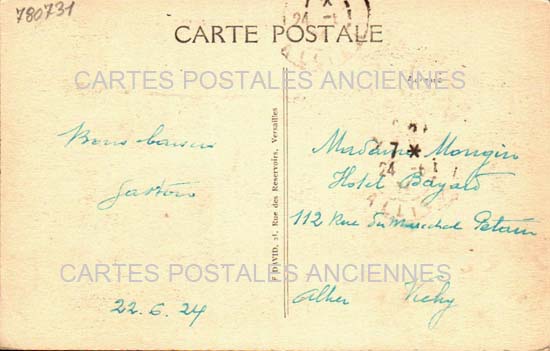 780731
24
CARTE POSTALE
CARTES POSTALES ANCIENNES
Adresse
Bons baisers
Gaston
F. DAVID, 21, Rue des Reservoirs, Versailles
7*
24
Madame Mongin
Hotel Bayard
112 Rue du Marechal Petain
CARTES POSTALES ANCIENNES
22.6.24
Allier Vichy